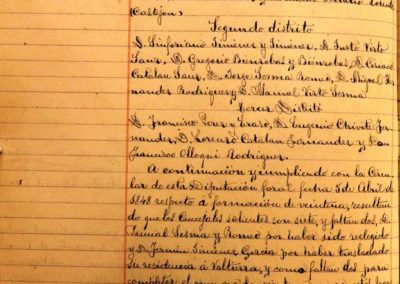 (Castejon)
Segundo distrito
D. Sinforiano Jimenez y Jimenez, D. Justo Virto
Sanz, D. Gregorio Bienzobas y Bienzobas, D. Ciriaco
Catalan Sanz, D. Jorge Sesma Romeo, D. Miguel Fer-
nandez Rodriguez y D. Manuel Virto Sesma
Tercer Distrito
D. Francisco Perez y Eraso, D. Eugenio Chivite Fer-
nandez, D. Lorenzo Catalan Fernandez y Don
Francisco Olloqui Rodriguez.
A continuación y cumpliendo con la Circu-
lar de esta Diputación foral fecha 5 de Abril de
1848 respecto á formación de veintena, resultan
do que los Concejales salientes son siete, y faltan dos, D.
Pascual Sesma y Romeo por haber sido reelegido
y D. Fermin Jimenez Garcia por haber trasladado
su residencia á Valtierra, y como faltan dos para
completar el